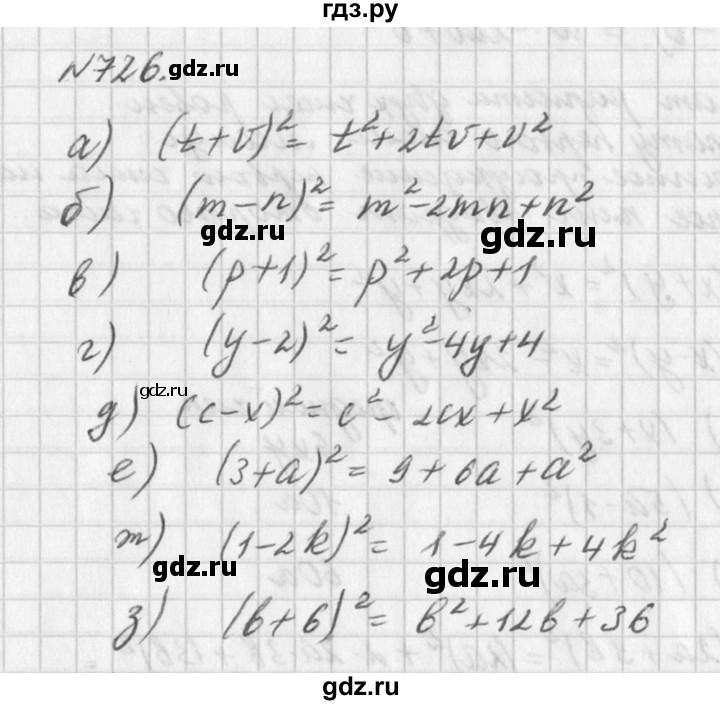 гдз.ру
№726. gdz.ru
а) (t+v)²= t²+2tv+v²
б) (m-n)²= m²-2mn+n²
gdz.ru gdz.ru
в) (p+1)²= p²+2p+1
г) (y-2)²= y²-4y+4
gdz.ru
д) (c-x)²= c²-2cx+x²
е) (3+a)²= 9+6a+a²
ж) (1-2k)²= 1-4k+4k²
gdz.ru gdz.ru
з) (b+6)²= b²+12b+36
gdz.ru